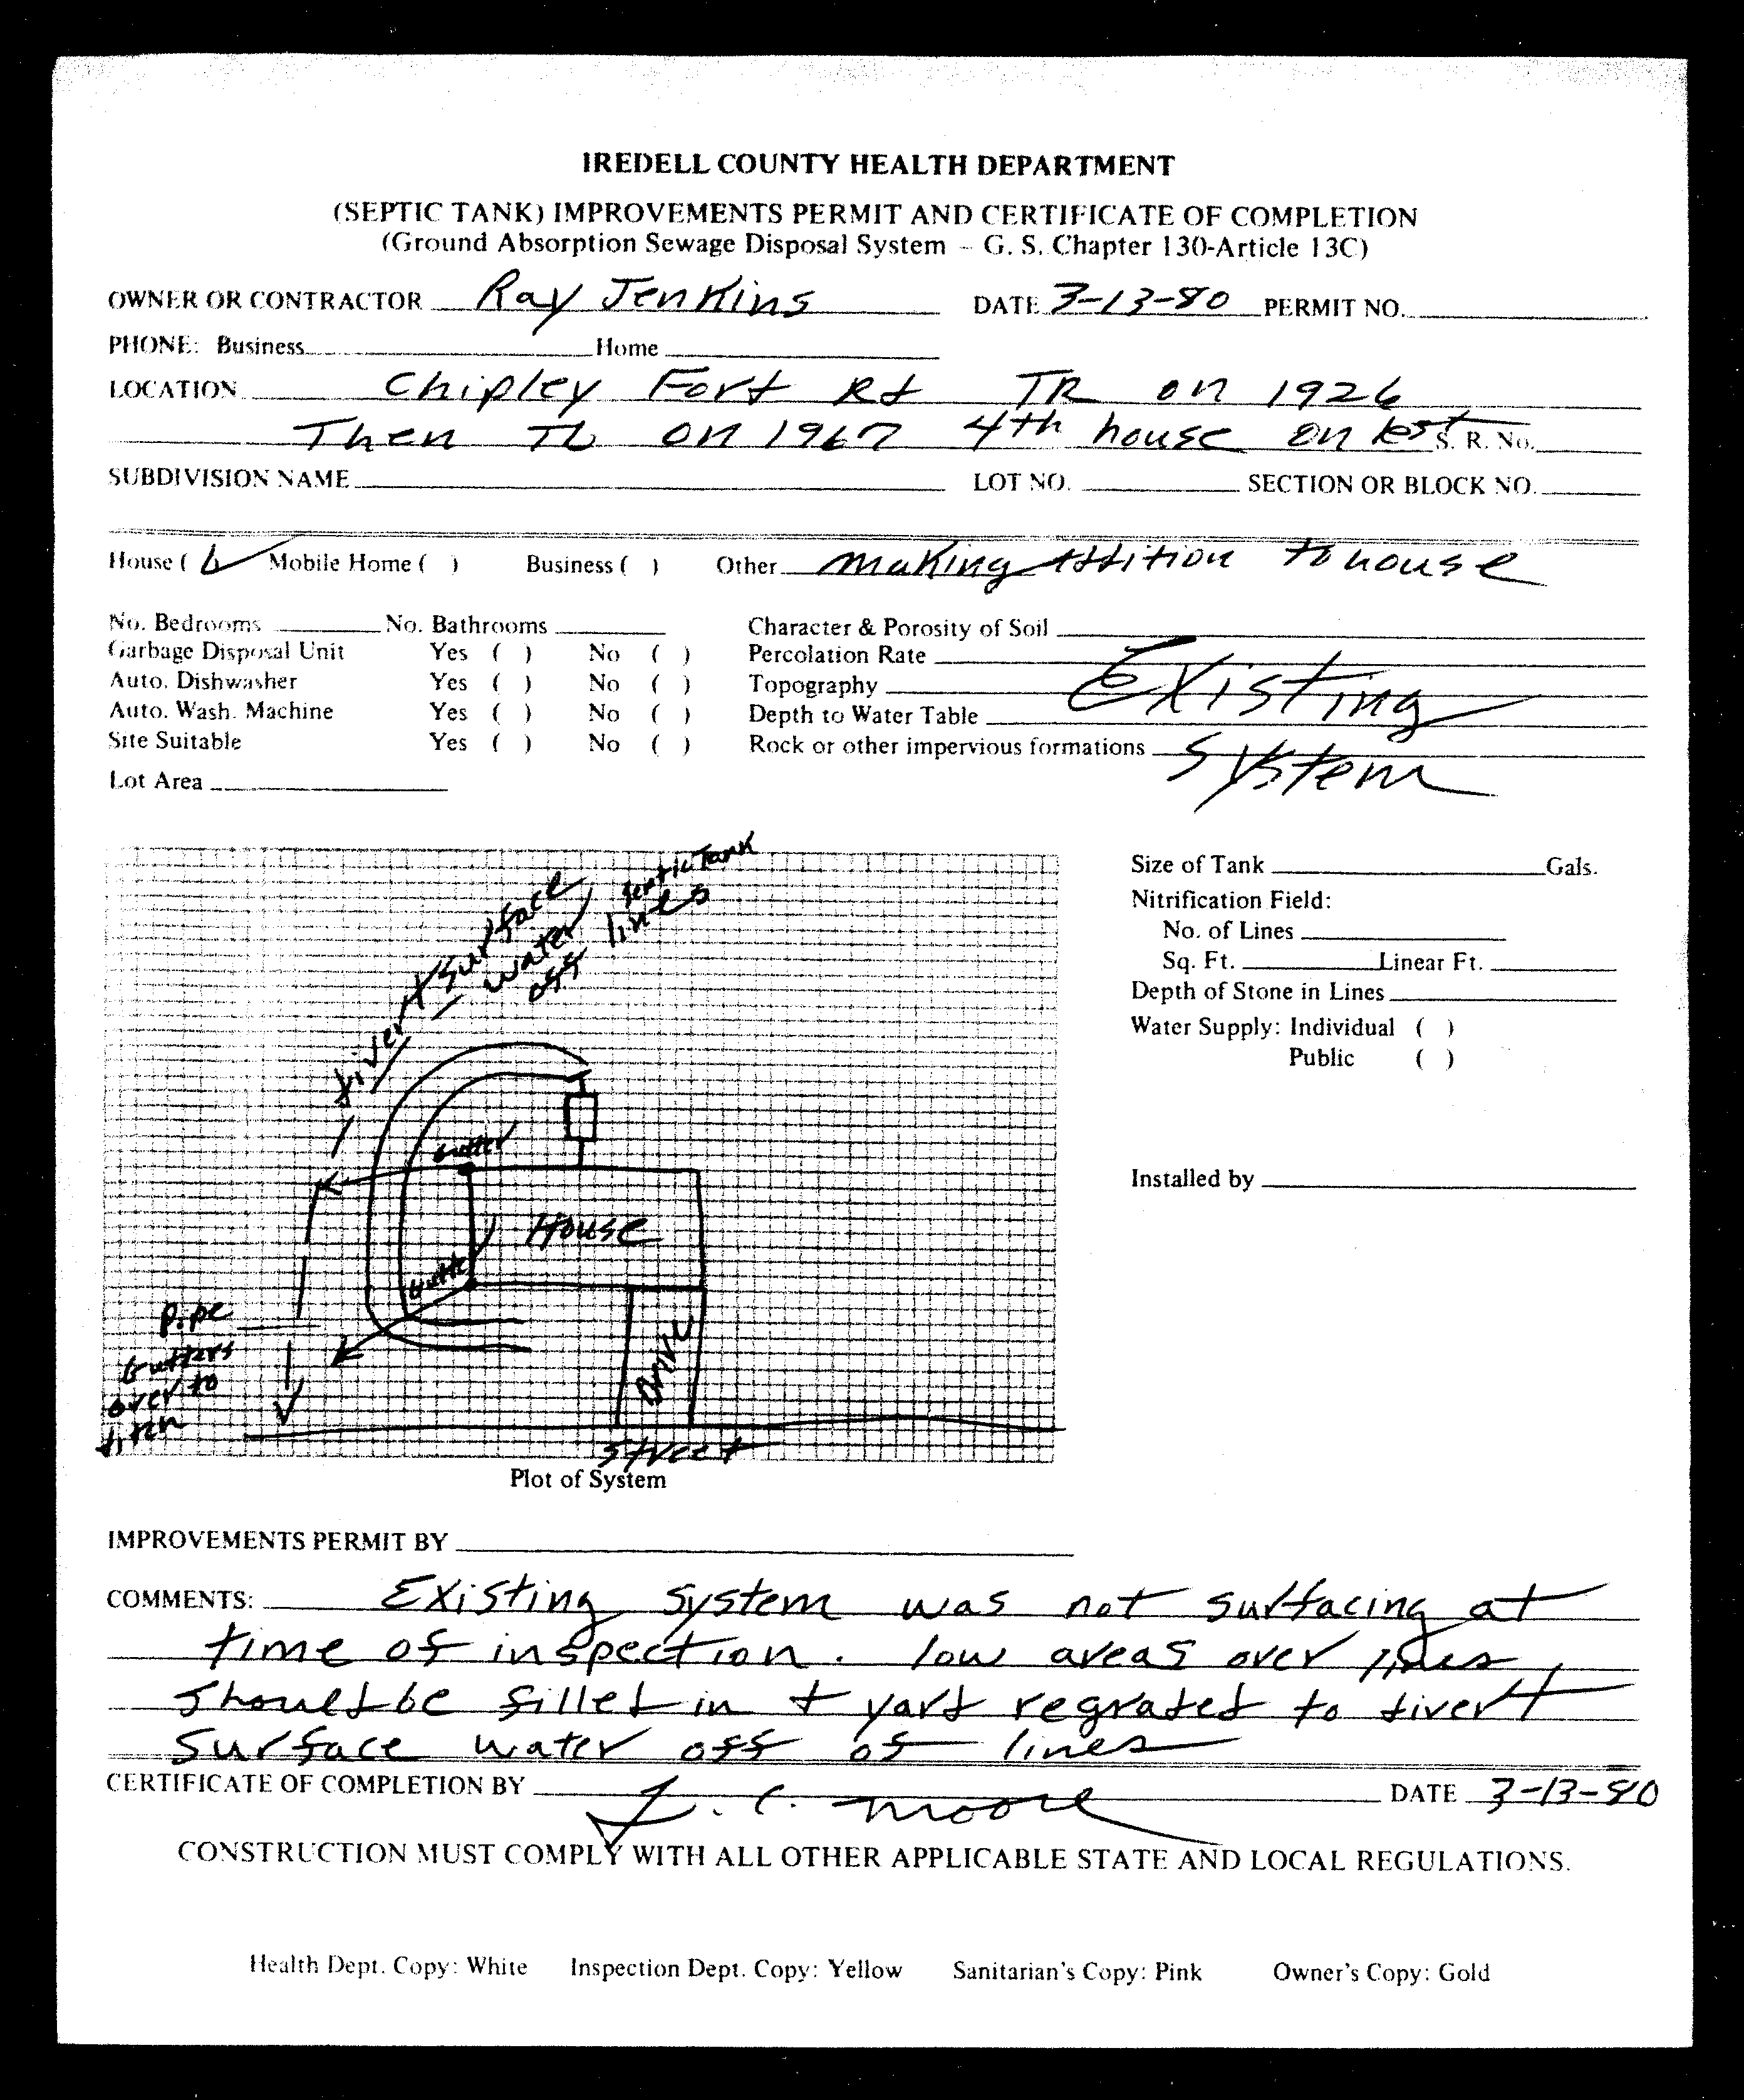 IREDELL COUNTY HEALTH DEPARTMENT
(SEPTIC TANK) IMPROVEMENTS PERMIT AND CERTIFICATE OF COMPLETION
(Ground Absorption Sewage Disposal System – G. S. Chapter 130-Article 13C)
OWNER OR CONTRACTOR Ray Jenkins DATE 3-13-80 PERMIT NO.
PHONE: Business Home
LOCATION Chipley Fort Rd TR on 1926
Then TL on 1967 4th house on left S. R. No.
SUBDIVISION NAME LOT NO. SECTION OR BLOCK NO.
House ( ✓ Mobile Home ( ) Business ( ) Other making addition to house
No. Bedrooms No. Bathrooms Character & Porosity of Soil
Garbage Disposal Unit Yes ( ) No ( ) Percolation Rate
Auto. Dishwasher Yes ( ) No ( ) Topography Existing
Auto. Wash. Machine Yes ( ) No ( ) Depth to Water Table
Site Suitable Yes ( ) No ( ) Rock or other impervious formations System
Lot Area
divert surface
water
off
septic Tank
lines
Gutter
House
Gutter
Pipe
Gutters
over to
Drive
Street
Plot of System
Size of Tank Gals.
Nitrification Field:
No. of Lines
Sq. Ft. Linear Ft.
Depth of Stone in Lines
Water Supply: Individual ( )
Public ( )
Installed by
IMPROVEMENTS PERMIT BY
COMMENTS: Existing system was not surfacing at
time of inspection. low areas over lines
should be filled in + yard regraded to divert
surface water off of lines
CERTIFICATE OF COMPLETION BY J. C. Moore DATE 3-13-80
CONSTRUCTION MUST COMPLY WITH ALL OTHER APPLICABLE STATE AND LOCAL REGULATIONS.
Health Dept. Copy: White Inspection Dept. Copy: Yellow Sanitarian's Copy: Pink Owner's Copy: Gold